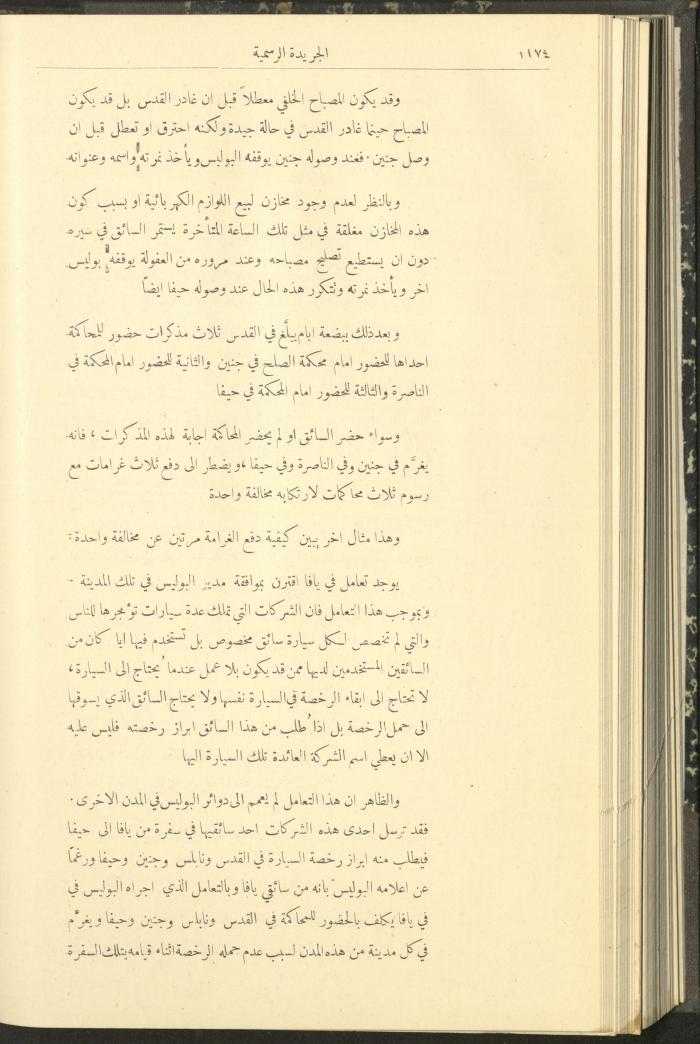 ١١٧٤
الجريدة الرسمية
وقد يكون المصباح الخلفي معطلاً قبل ان غادر القدس بل قد يكون
المصباح حينما غادر القدس في حالة جيدة ولكنه احترق او تعطل قبل ان
وصل جنين . فعند وصوله جنين يوقفه البوليس ويأخذ نمرته واسمه وعنوانه
وبالنظر لعدم وجود مخازن لبيع اللوازم الكهربائية او بسبب كون
هذه المخازن مغلقة في مثل تلك الساعة المتأخرة يستمر السائق في سيره
دون ان يستطيع تصليح مصباحه وعند مروره من العفولة يوقفه بوليس
اخر ويأخذ نمرته وتتكرر هذه الحال عند وصوله حيفا ايضاً
وبعد ذلك ببضعة ايام يبلَّغ في القدس ثلاث مذكرات حضور للمحاكمة
احداها للحضور امام محكمة الصلح في جنين والثانية للحضور امام المحكمة في
الناصرة والثالثة للحضور امام المحكمة في حيفا
وسواء حضر السائق او لم يحضر المحاكمة اجابة لهذه المذكرات ، فانه
يغرَّم في جنين وفي الناصرة وفي حيفا ، ويضطر الى دفع ثلاث غرامات مع
رسوم ثلاث محاكمات لارتكابه مخالفة واحدة
وهذا مثال اخر يبين كيفية دفع الغرامة مرتين عن مخالفة واحدة :
يوجد تعامل في يافا اقترن بموافقة مدير البوليس في تلك المدينة -
وبموجب هذا التعامل فان الشركات التي تملك عدة سيارات تؤجرها للناس
والتي لم تخصص لكل سيارة سائق مخصوص بل تستخدم فيها ايا كان من
السائقين المستخدمين لديها ممن قد يكون بلا عمل عندما يُحتاج الى السيارة ،
لا تحتاج الى ابقاء الرخصة في السيارة نفسها ولا يحتاج السائق الذي يسوقها
الى حمل الرخصة بل اذا طُلب من هذا السائق ابراز رخصته فليس عليه
الا ان يعطي اسم الشركة العائدة تلك السيارة اليها
والظاهر ان هذا التعامل لم يعمم الى دوائر البوليس في المدن الاخرى .
فقد ترسل احدى هذه الشركات احد سائقيها في سفرة من يافا الى حيفا
فيطلب منه ابراز رخصة السيارة في القدس ونابلس وجنين وحيفا ورغماً
عن اعلامه البوليس بانه من سائقي يافا وبالتعامل الذي اجراه البوليس في
في يافا يكلف بالحضور للمحاكمة في القدس ونابلس وجنين وحيفا ويغرَّم
في كل مدينة من هذه المدن لسبب عدم حمله الرخصة اثناء قيامه بتلك السفرة